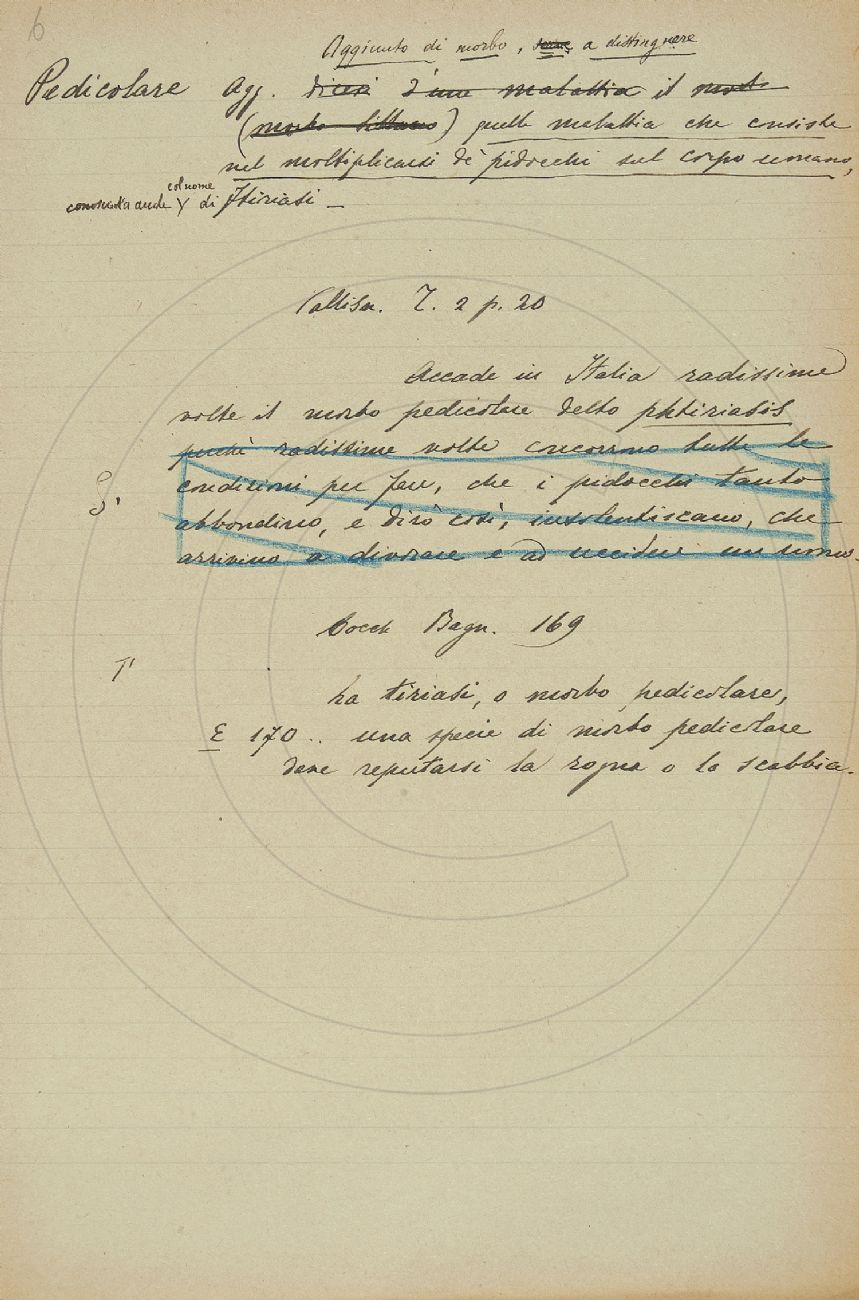 6
Aggiunto di morbo, a distinguere
Pedicolare Agg. dicesi d'una malattia il morbo
(morbo ) quella malattia che consiste
nel moltiplicarsi de' pidocchi sul corpo umano,
col nome
conosciuta anche di Ftiriasi —
Vallisn. T. 2 p. 20
Accade in Italia radissime
volte il morbo pedicolare detto phtiriasis
perchè radissime volte concorrono tutte le
condizioni per fare, che i pidocchi tanto
abbondino, e dirò così, insolentiscano, che
arrivino a divorare e ad uccidere un uomo.
Cocch Bagn. 169
La tiriasi, o morbo pedicolare,
E 170 .. una specie di morbo pedicolare
deve reputarsi la rogna o la scabbia.